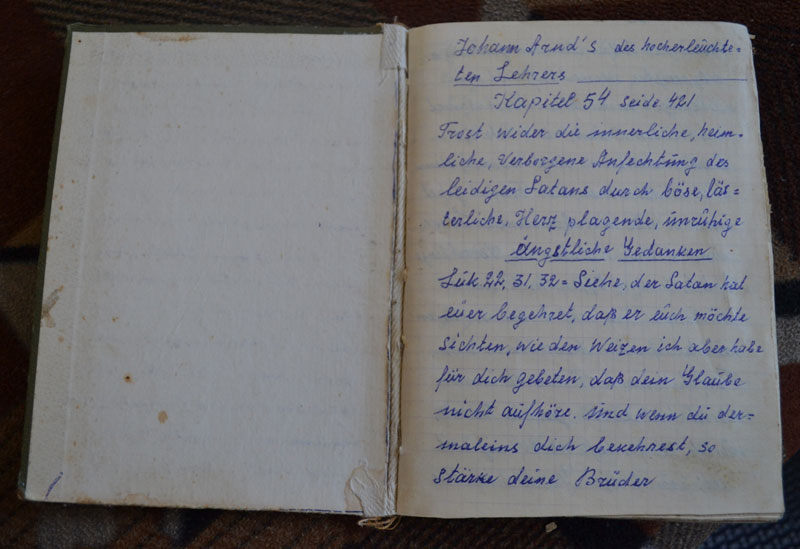 Johann Arnd's des hocherleuchte=
ten Lehrers
Kapitel 54 seide 421
Trost wider die innerliche, heim-
liche, Verborgene Anfechtung des
leidigen Satans durch böse, läs=
terliche, Herz plagende, unruhige
Ängstliche Gedanken
Luk 22, 31, 32 = Siehe, der Satan hat
euer begehret, daß er euch möchte
sichten, wie den Weizen ich aber habe
für dich gebeten, daß dein Glaube
nicht aufhöre. Und wenn du der=
maleins dich bekehrest, so
stärke deine Brüder